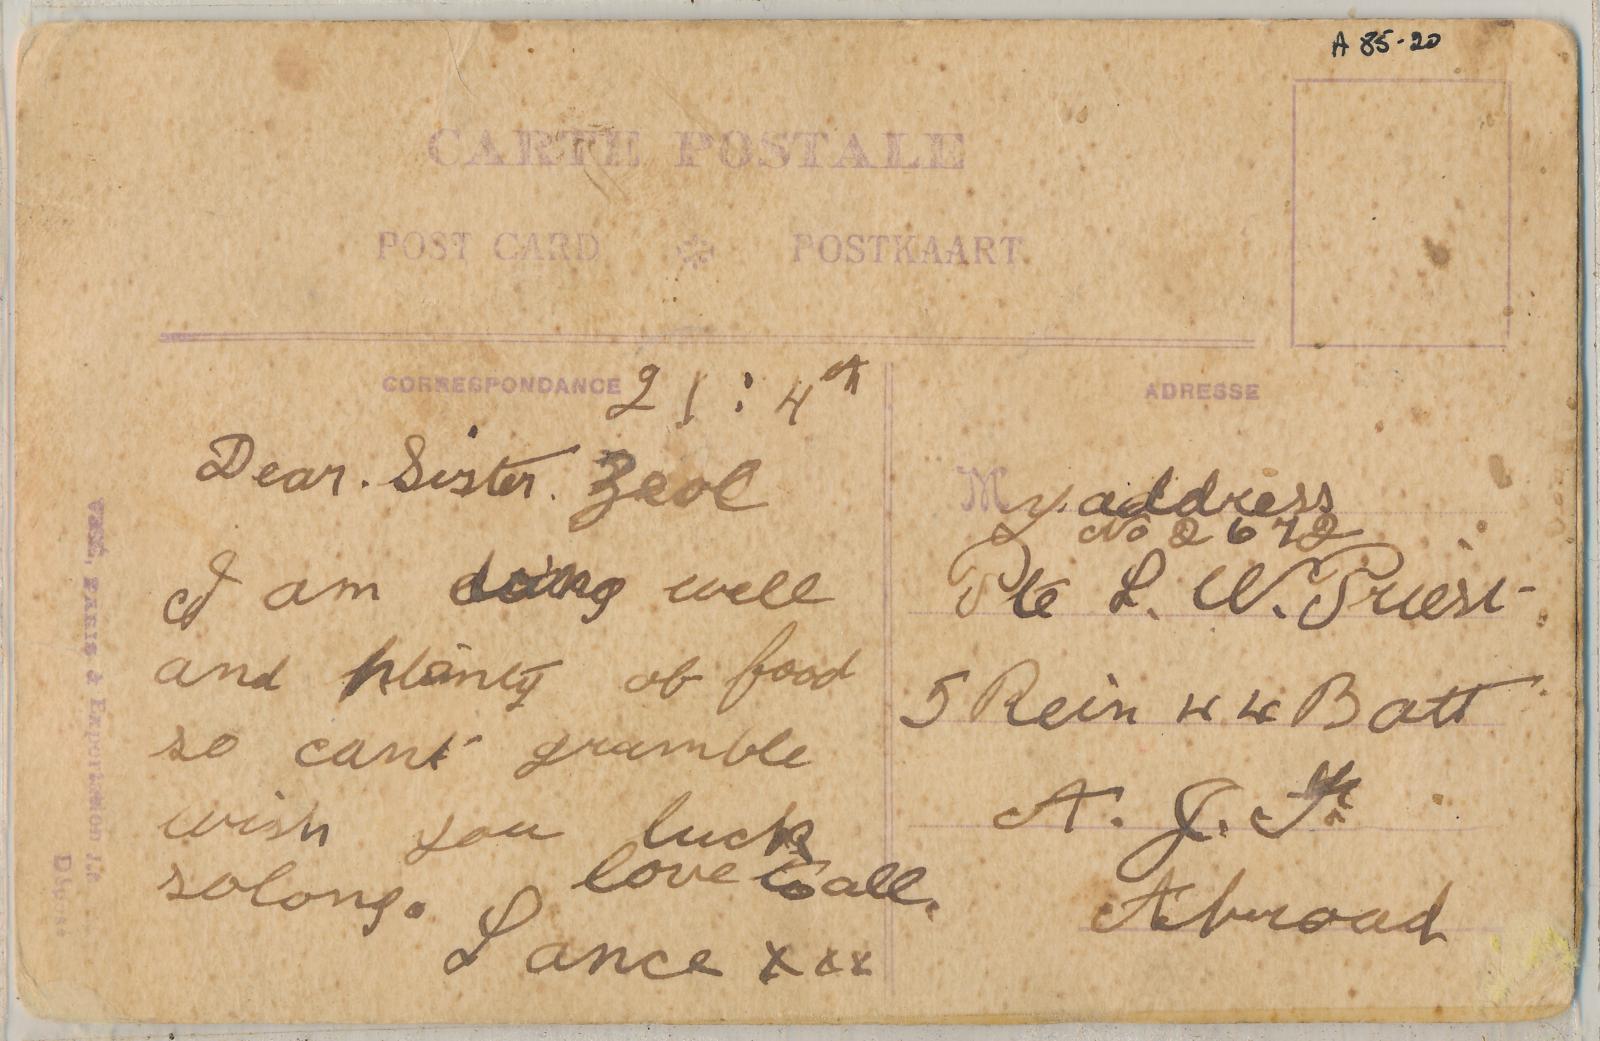 A 85-20
CARTE POSTALE
POST CARD POSTKAART
CORRESPONDANCE
ADRESSE
21 : 4th
Dear. Sister.
I am doing well
and plenty of food
so cant grumble
wish you luck
solong. love to all.
Lance xxx
My address
No 2672
Pte L. W. Priest
5 Rein 44 Batt
A. J. F.
Abroad
Paris & Exportation